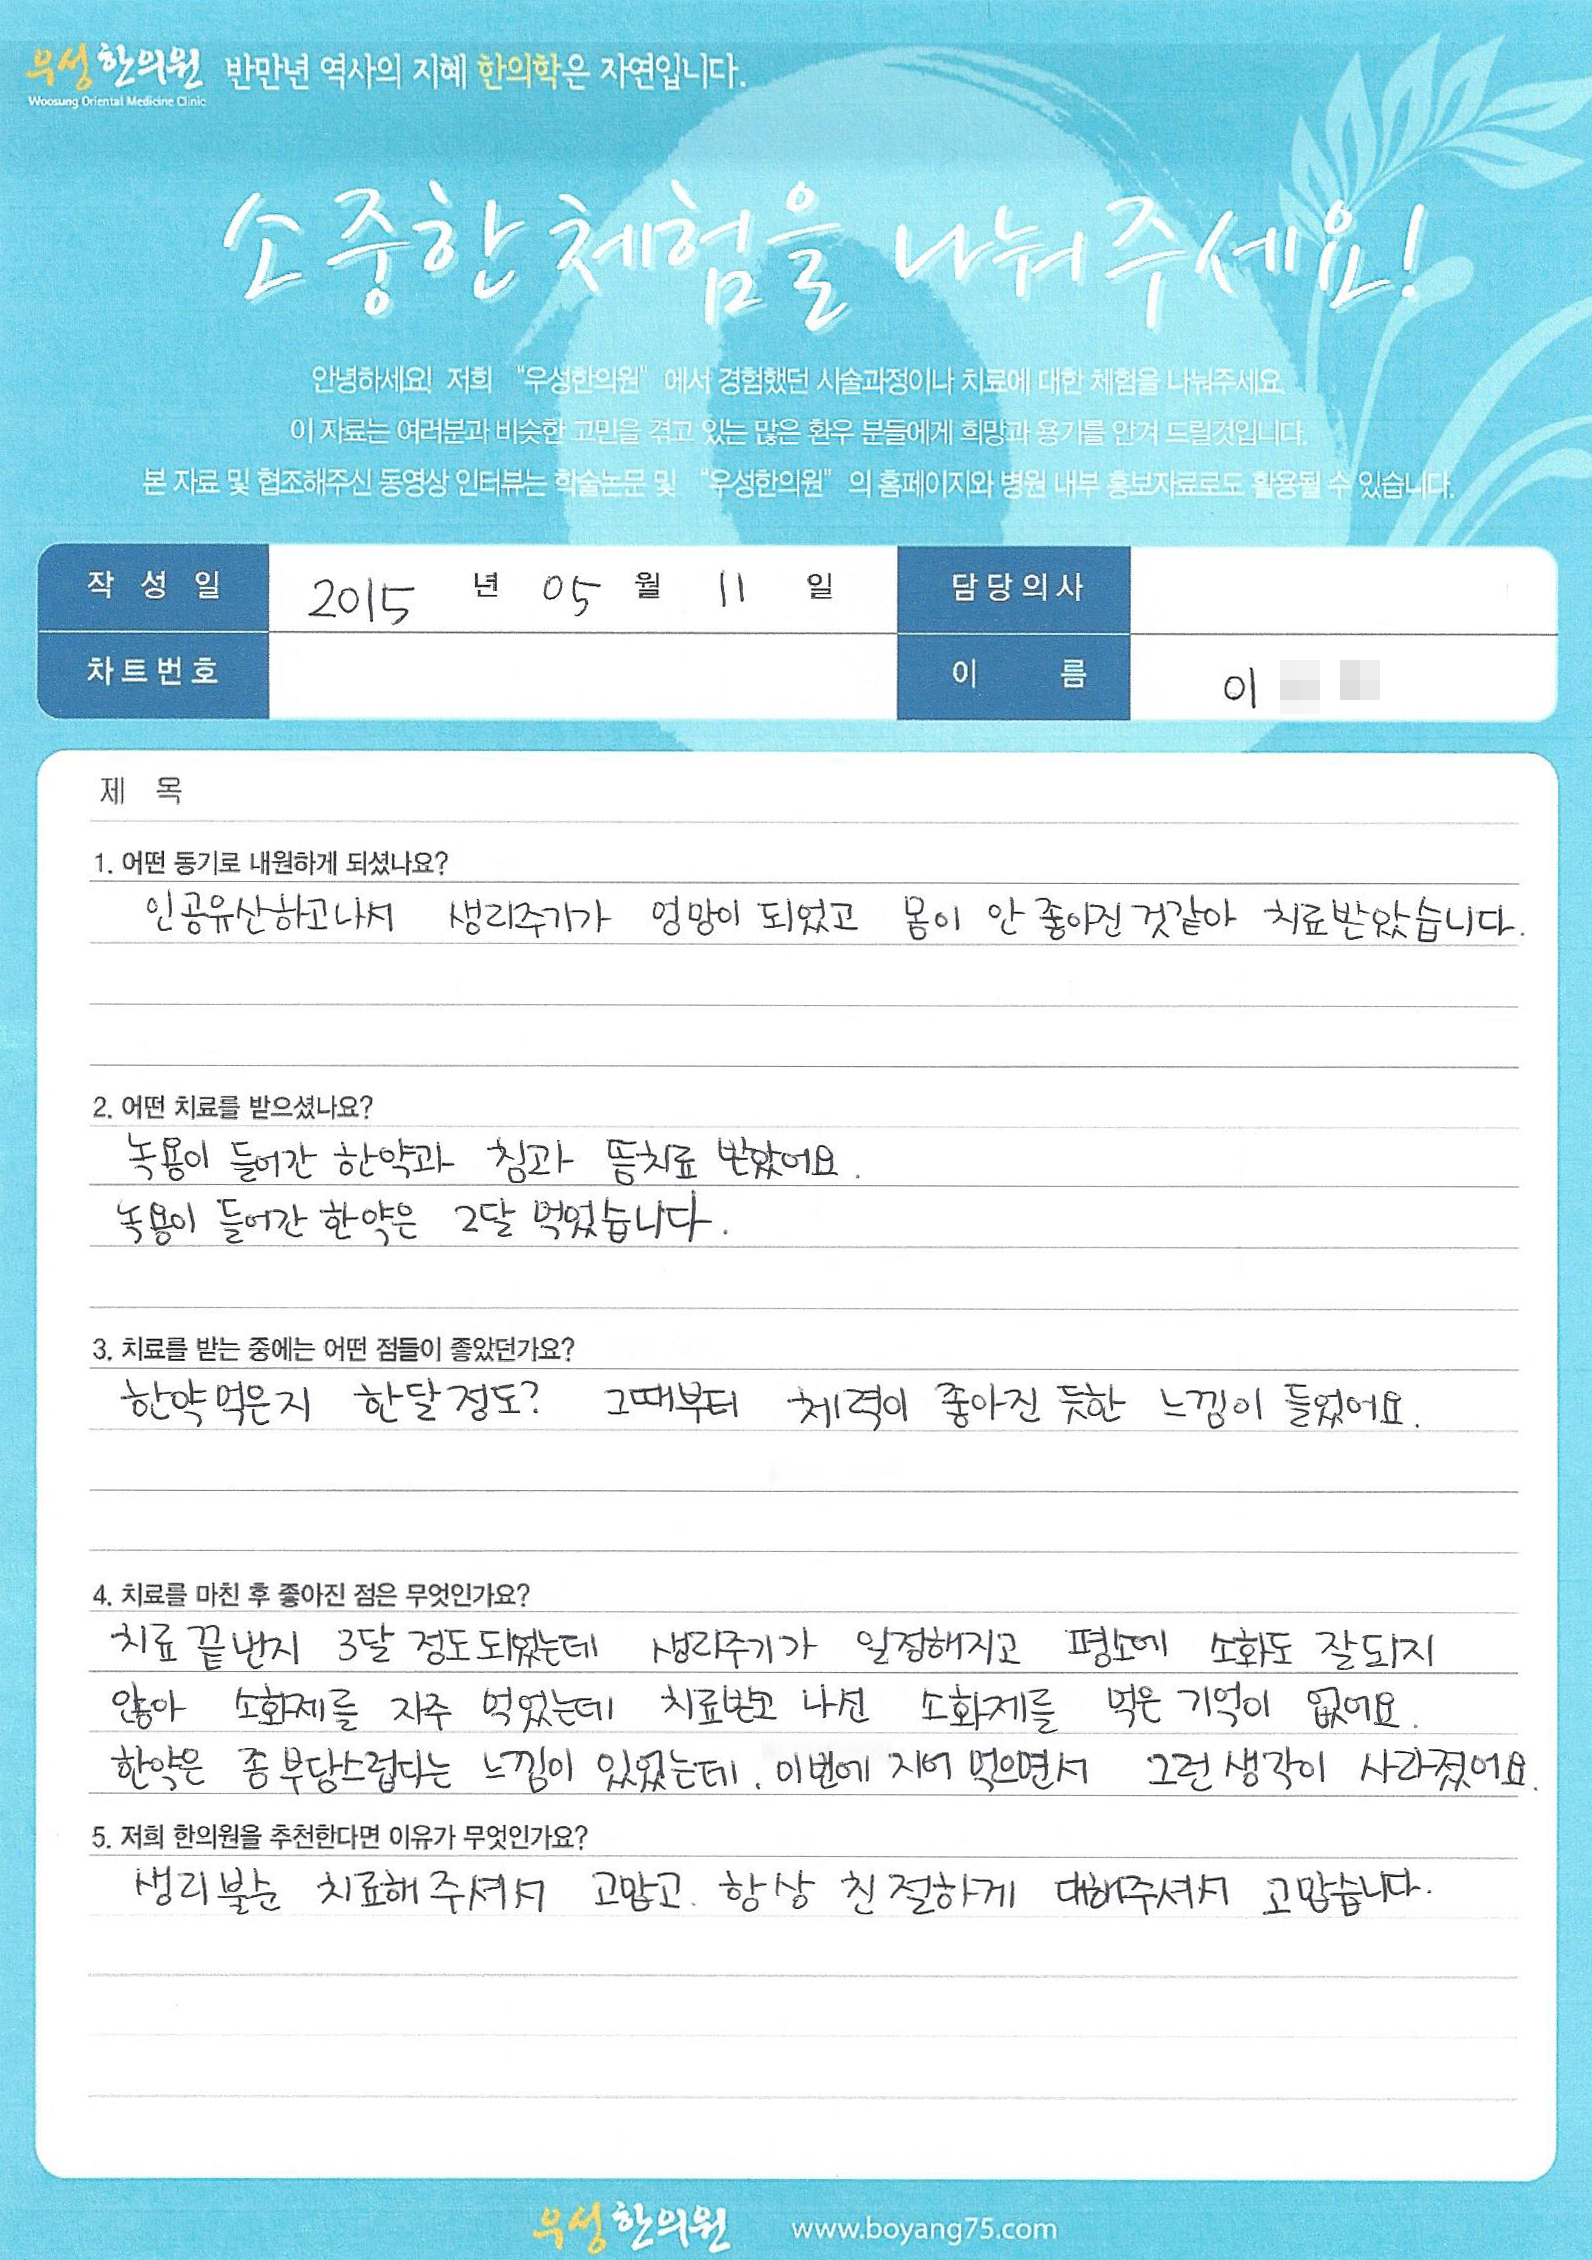 우성한의원 반만년 역사의 지혜 한의학은 자연입니다.
Woosung Oriental Medicine Clinic
소중한 체험을 나눠주세요!
안녕하세요! 저희 "우성한의원" 에서 경험했던 시술과정이나 치료에 대한 체험을 나눠주세요.
이 자료는 여러분과 비슷한 고민을 겪고 있는 많은 환우 분들에게 희망과 용기를 안겨 드릴것입니다.
본 자료 및 협조해주신 동영상 인터뷰는 학술논문 및 "우성한의원" 의 홈페이지와 병원 내부 홍보자료로도 활용될 수 있습니다.
작 성 일 2015 년 05 월 11 일 담당의사
차트번호 이 름 이
제 목
1. 어떤 동기로 내원하게 되셨나요?
인공유산하고나서 생리주기가 엉망이 되었고 몸이 안 좋아진것같아 치료받았습니다.
2. 어떤 치료를 받으셨나요?
녹용이 들어간 한약과 침과 뜸치료 받았어요.
녹용이 들어간 한약은 2달 먹었습니다.
3. 치료를 받는 중에는 어떤 점들이 좋았던가요?
한약먹은지 한달정도? 그때부터 체력이 좋아진 듯한 느낌이 들었어요.
4. 치료를 마친 후 좋아진 점은 무엇인가요?
치료 끝낸지 3달 정도되었는데 생리주기가 일정해지고 평소에 소화도 잘되지
않아 소화제를 자주 먹었는데 치료받고 나선 소화제를 먹은 기억이 없어요.
한약은 좀 부담스럽다는 느낌이 있었는데. 이번에 지어 먹으면서 그런 생각이 사라졌어요.
5. 저희 한의원을 추천한다면 이유가 무엇인가요?
생리불순 치료해주셔서 고맙고. 항상 친절하게 대해주셔서 고맙습니다.
우성한의원 www.boyang75.com